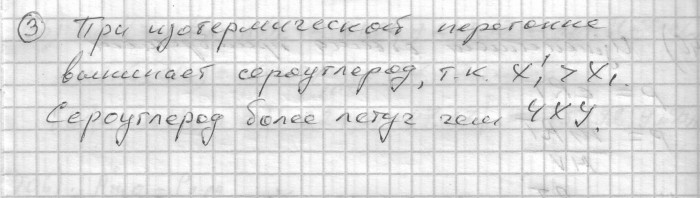 ③ При изотермической перегонке
выкипает сероуглерод, т.к. X₁' > X₁.
Сероуглерод более летуч чем ЧХУ.